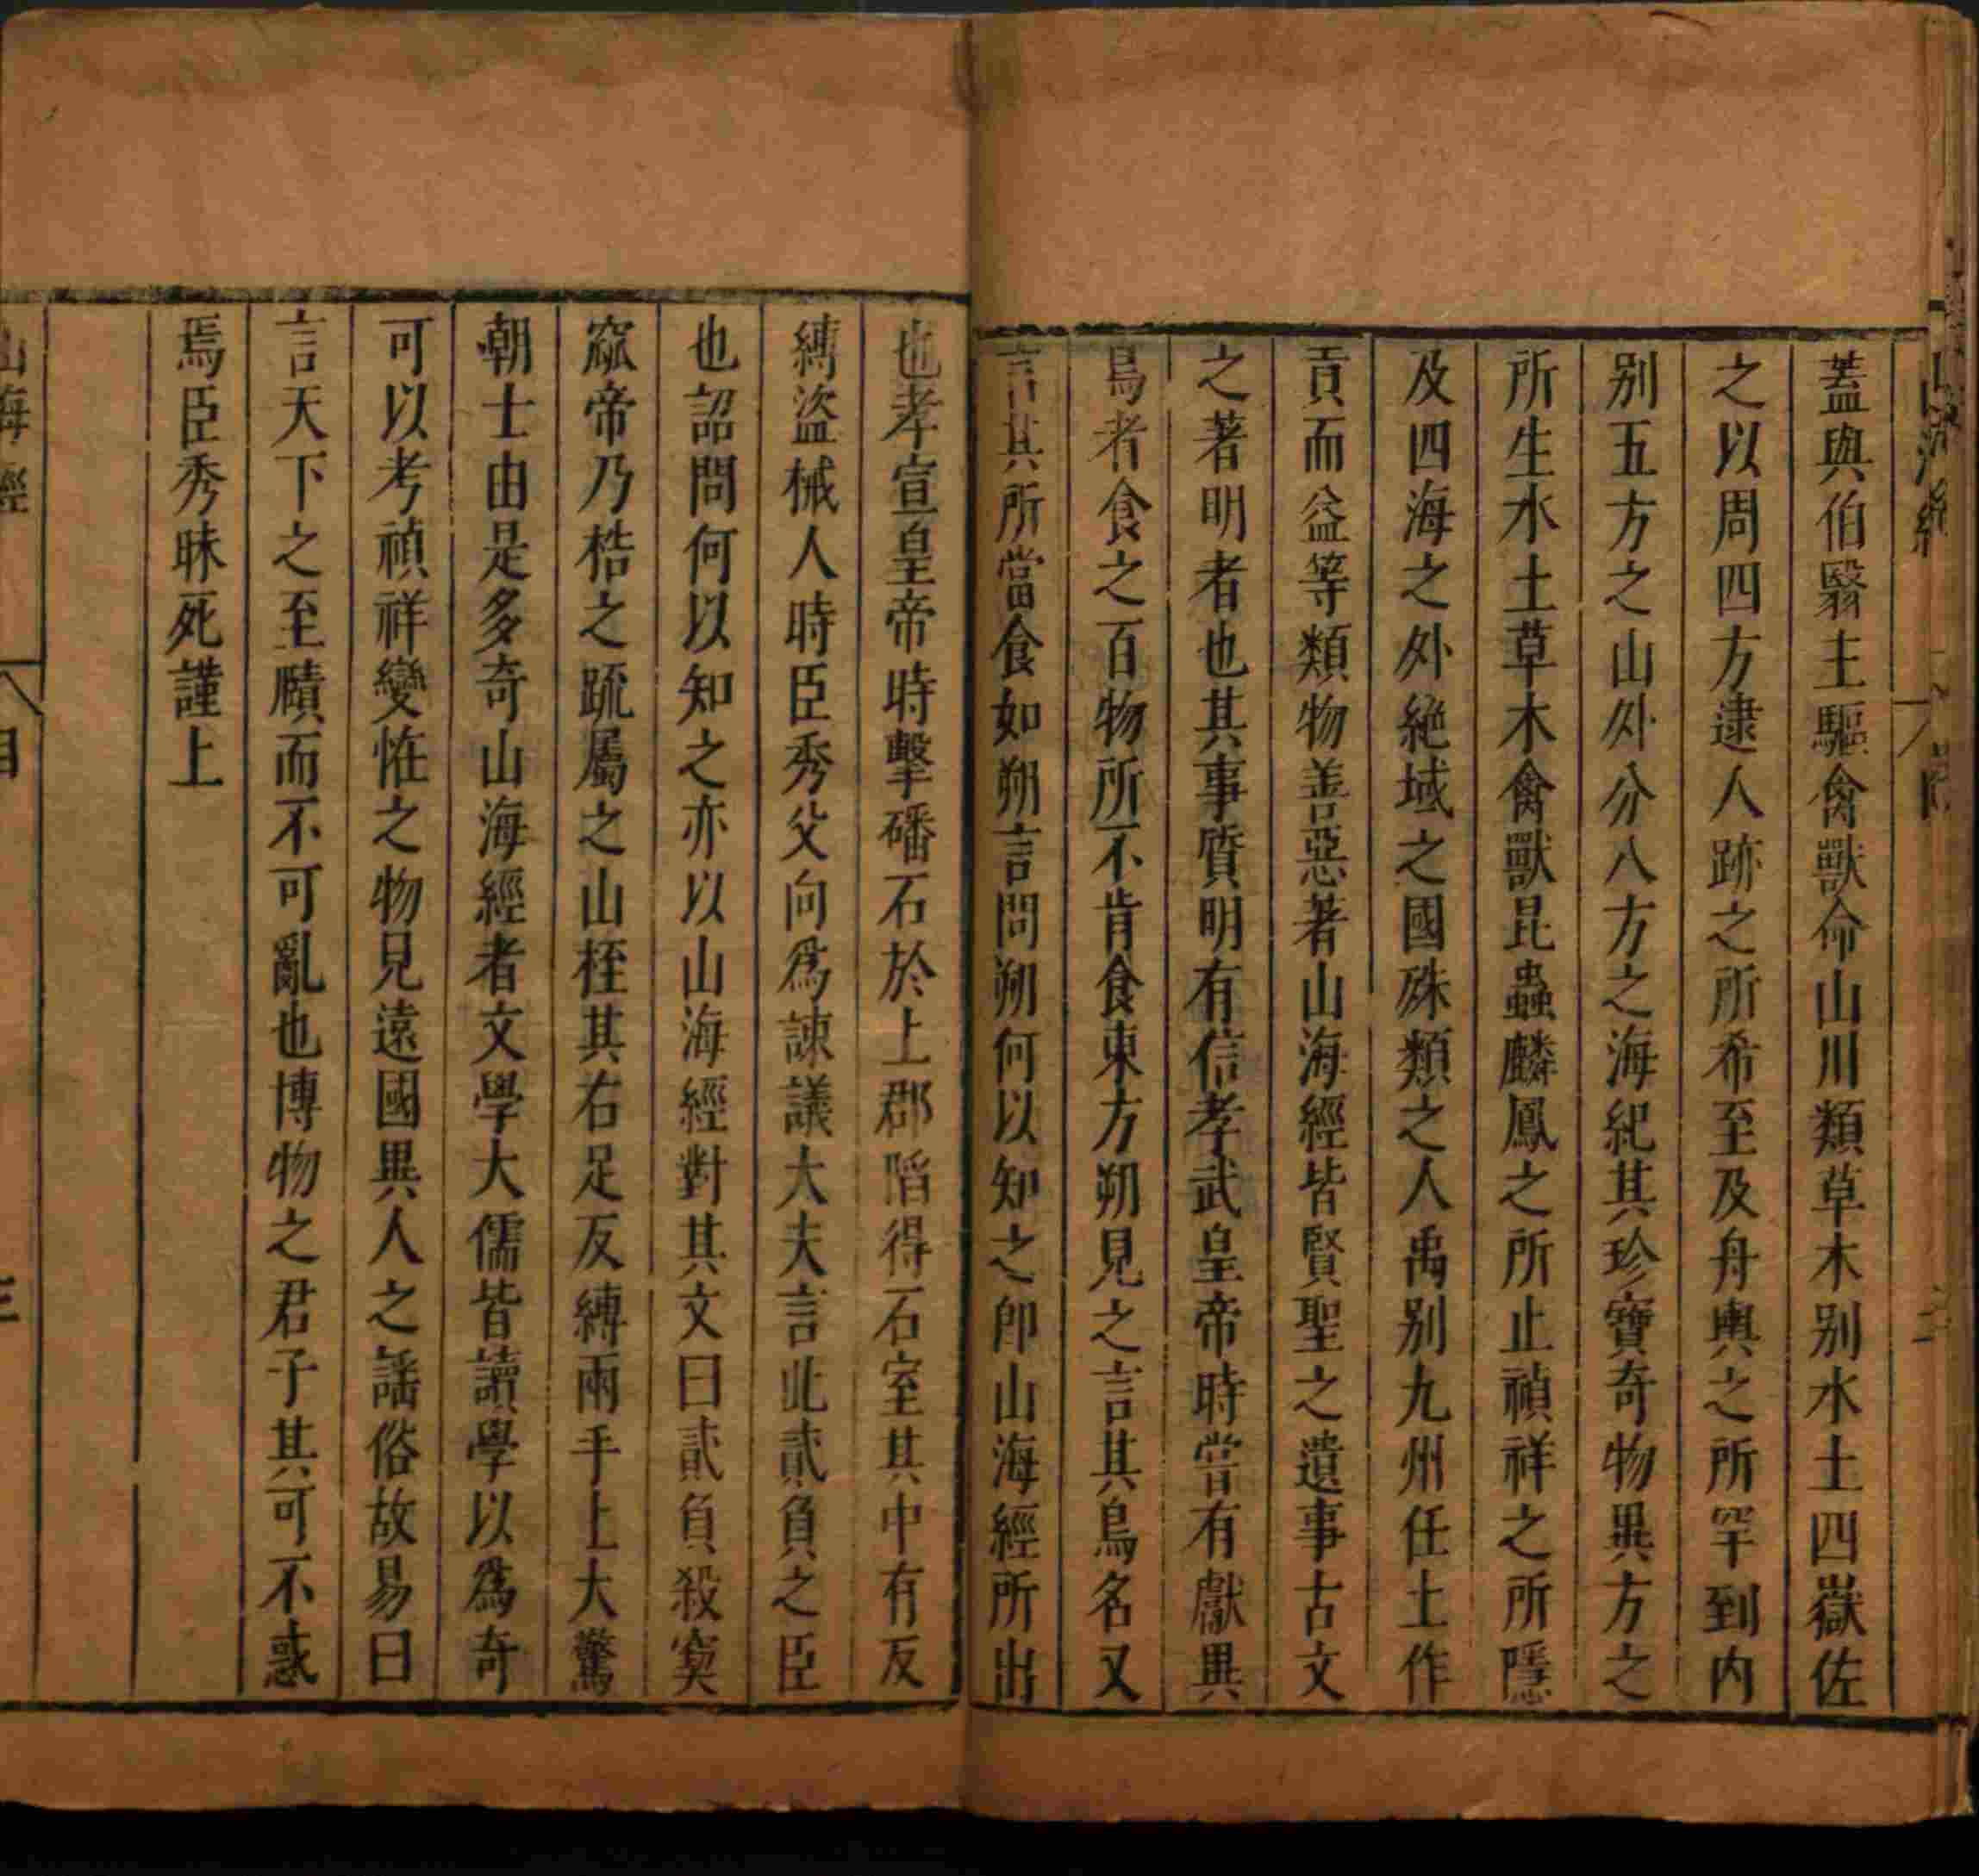 山海經
蓋與伯翳主驅禽獸命山川類草木别水土四嶽佐
之以周四方逮人跡之所希至及舟輿之所罕到内
别五方之山外分八方之海紀其珍寶奇物異方之
所生水土草木禽獸昆蟲麟鳳之所止禎祥之所隱
及四海之外絶域之國殊類之人禹别九州任土作
貢而益等類物善惡著山海經皆賢聖之遺事古文
之著明者也其事質明有信孝武皇帝時嘗有獻異
鳥者食之百物所不肯食東方朔見之言其鳥名又
言其所當食如朔言問朔何以知之即山海經所出
也孝宣皇帝時擊磻石於上郡陷得石室其中有反
縛盜械人時臣秀父向爲諫議大夫言此貳負之臣
也詔問何以知之亦以山海經對其文曰貳負殺窫
窳帝乃梏之疏屬之山桎其右足反縛兩手上大驚
朝士由是多奇山海經者文學大儒皆讀學以爲奇
可以考禎祥變恠之物見遠國異人之謠俗故易曰
言天下之至賾而不可亂也博物之君子其可不惑
焉臣秀昧死謹上
山海經 目 三